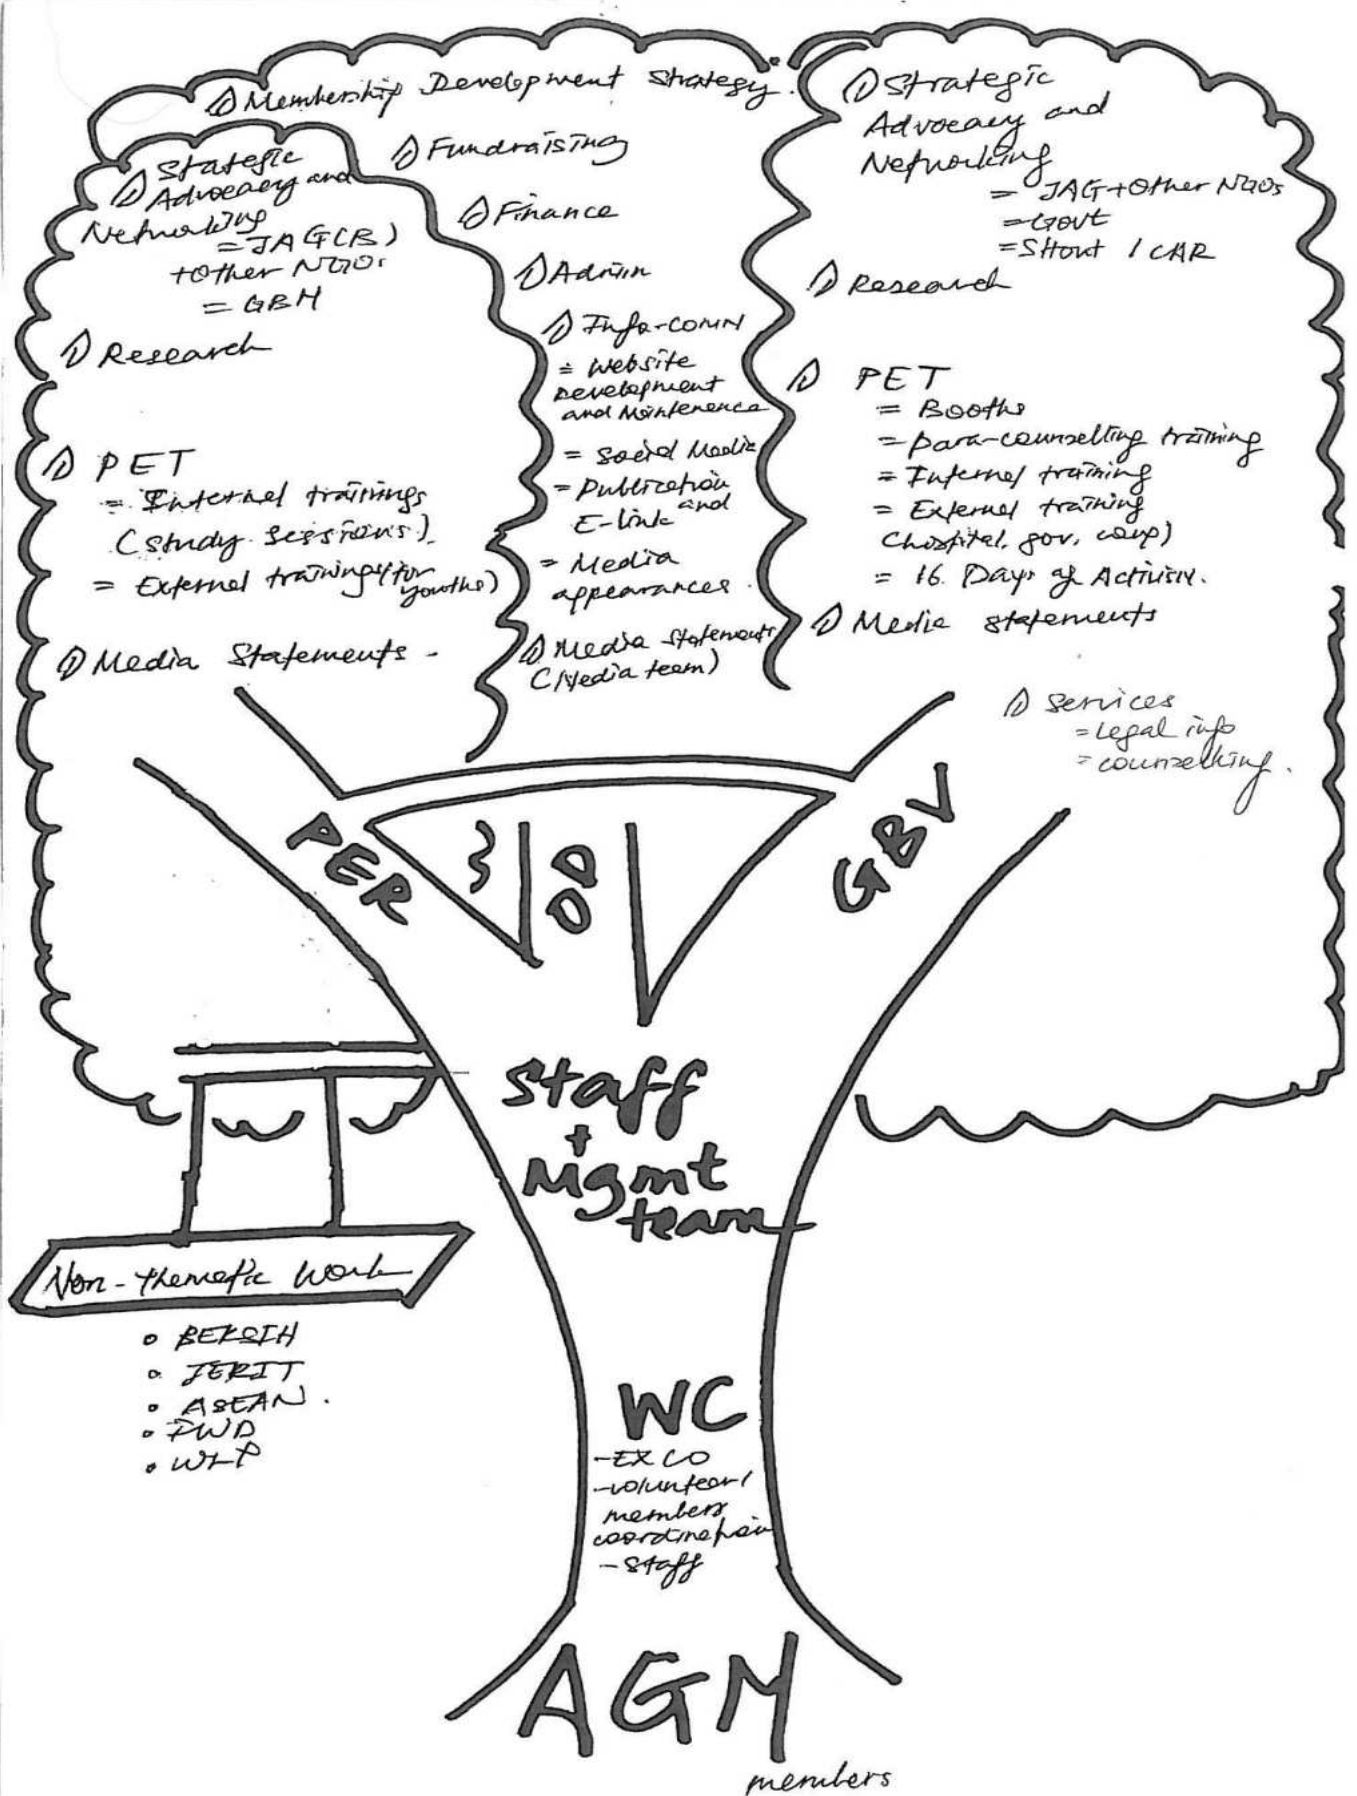 Membership Development Strategy.
Fundraising
Finance
Admin
Info-comm
= Website
Development
and Maintenence
= Social Media
= Publication
and
E-link
= Media
appearances.
Media statements
(Media team)
Stategic
Advocacy and
Networking
= JAG(CB)
+Other NGOs
= GBM
Research
PET
= Internal trainings
(study sessions)
= External trainings (for
youths)
Media Statements -
Strategic
Advocacy and
Networking
= JAG+Other NGOs
= Govt
= Shout / CAR
Research
PET
= Booths
= para-counselling training
= Internal training
= External training
(hospital, gov, coup)
= 16 Days of Activism.
Media statements
Services
= Legal info
= counselling.
PER
OD
GBV
Staff
+
Mgmt
team
Non-thematic Work
• BERSIH
• JERIT
• ASEAN.
• FWD
• WLP
WC
- EXCO
- volunteer/
members
coordination
- staff
AGM
members